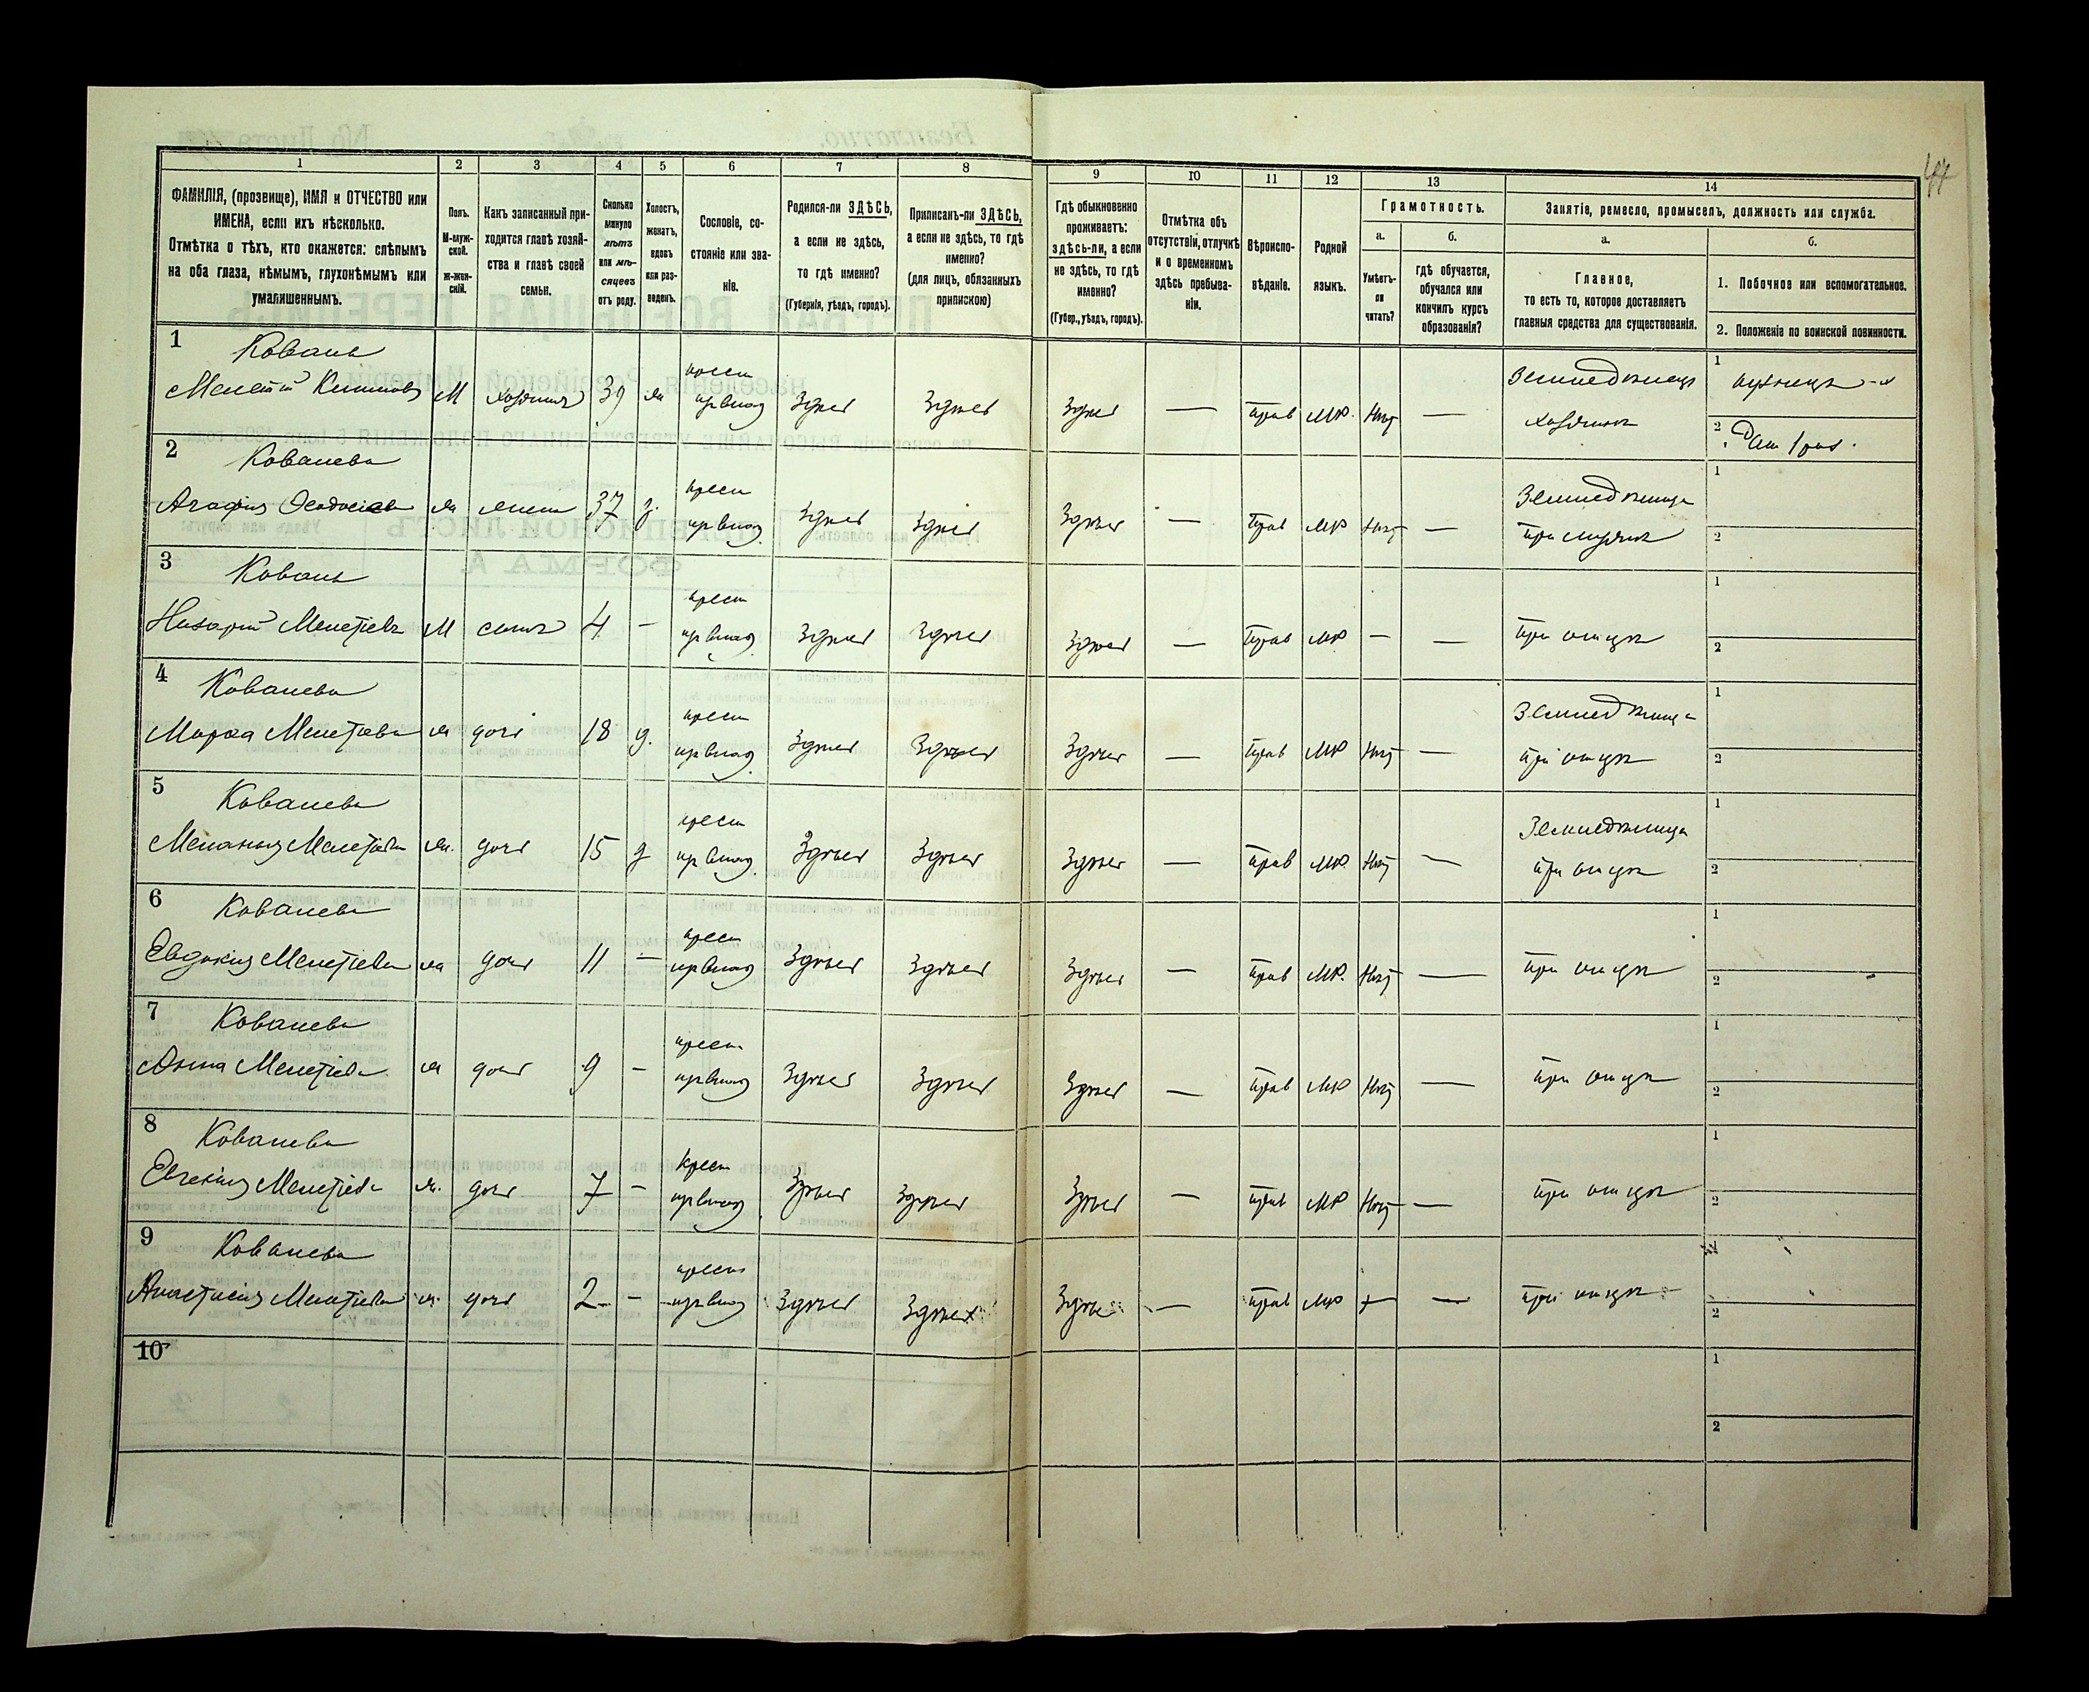 1 2 3 4 5 6 7 8 9 10 11 12 13 14
ФАМИЛІЯ, (прозвище), ИМЯ и ОТЧЕСТВО или
ИМЕНА, если ихъ нѣсколько.
Отмѣтка о тѣхъ, кто окажется: слѣпымъ
на оба глаза, нѣмымъ, глухонѣмымъ или
умалишеннымъ.
Полъ.
М-муж-
ской.
ж-жен-
скій.
Какъ записанный при-
ходится главѣ хозяй-
ства и главѣ своей
семьи.
Сколько
минуло
лѣтъ
или мѣ-
сяцевъ
отъ роду.
Холостъ,
женатъ,
вдовъ
или раз-
веденъ.
Сословіе, со-
стояніе или зва-
ніе.
Родился-ли ЗДѢСЬ,
а если не здѣсь,
то гдѣ именно?
(Губернія, уѣздъ, городъ).
Приписанъ-ли ЗДѢСЬ,
а если не здѣсь, то гдѣ
именно?
(для лицъ, обязанныхъ
припискою)
Гдѣ обыкновенно
проживаетъ:
здѣсь-ли, а если
не здѣсь, то гдѣ
именно?
(Губер., уѣздъ, городъ).
Отмѣтка объ
отсутствіи, отлучкѣ
и о временномъ
здѣсь пребыва-
ніи.
Вѣроиспо-
вѣданіе.
Родной
языкъ.
Грамотность.
а.
Умѣетъ-
ли
читать?
б.
гдѣ обучается,
обучался или
кончилъ курсъ
образованія?
Занятіе, ремесло, промыселъ, должность или служба.
а.
Главное,
то есть то, которое доставляетъ
главныя средства для существованія.
б.
1. Побочное или вспомогательное.
2. Положеніе по воинской повинности.
1 Коваль крест Земледѣлецъ 1
Мелетій М хозяинъ 39 ж Здѣсь Здѣсь Здѣсь — прав МР. Нѣтъ — хозяинъ
2
2 Ковалева крест Земледѣлица 1
Агафія Ѳеодосіева ж жена 37 з. Здѣсь Здѣсь Здѣсь — прав МР Нѣтъ — при мужѣ 2
3 Коваль крест 1
Назарій Мелетіевъ М сынъ 4 — Здѣсь Здѣсь Здѣсь — прав МР — — при отцѣ 2
4 Ковалева крест Земледѣлица 1
Мелетіева ж дочь 18 д. Здѣсь Здѣсь Здѣсь — прав МР Нѣтъ — при отцѣ 2
5 Ковалева крест Земледѣлица 1
Меланія Мелетіева ж. дочь 15 д Здѣсь Здѣсь Здѣсь — прав МР. Нѣтъ — при отцѣ 2
6 Ковалева крест 1
Евдокія Мелетіева ж дочь 11 — Здѣсь Здѣсь Здѣсь — прав МР. Нѣтъ — при отцѣ 2
7 Ковалева крест 1
Анна Мелетіева ж дочь 9 — Здѣсь Здѣсь Здѣсь — прав МР Нѣтъ — при отцѣ 2
8 Ковалева Крест 1
Евгенія Мелетіева ж. дочь 7 — Здѣсь Здѣсь Здѣсь — прав МР Нѣтъ — при отцѣ 2
9 Ковалева крест 1
Анастасія Мелетіева ж. дочь 2 — Здѣсь Здѣсь Здѣсь — прав МР — — при отцѣ 2
10 1
2